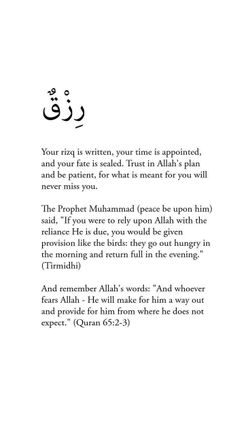 رِزْقٌ
Your rizq is written, your time is appointed,
and your fate is sealed. Trust in Allah's plan
and be patient, for what is meant for you will
never miss you.
The Prophet Muhammad (peace be upon him)
said, "If you were to rely upon Allah with the
reliance He is due, you would be given
provision like the birds: they go out hungry in
the morning and return full in the evening."
(Tirmidhi)
And remember Allah's words: "And whoever
fears Allah - He will make for him a way out
and provide for him from where he does not
expect." (Quran 65:2-3)